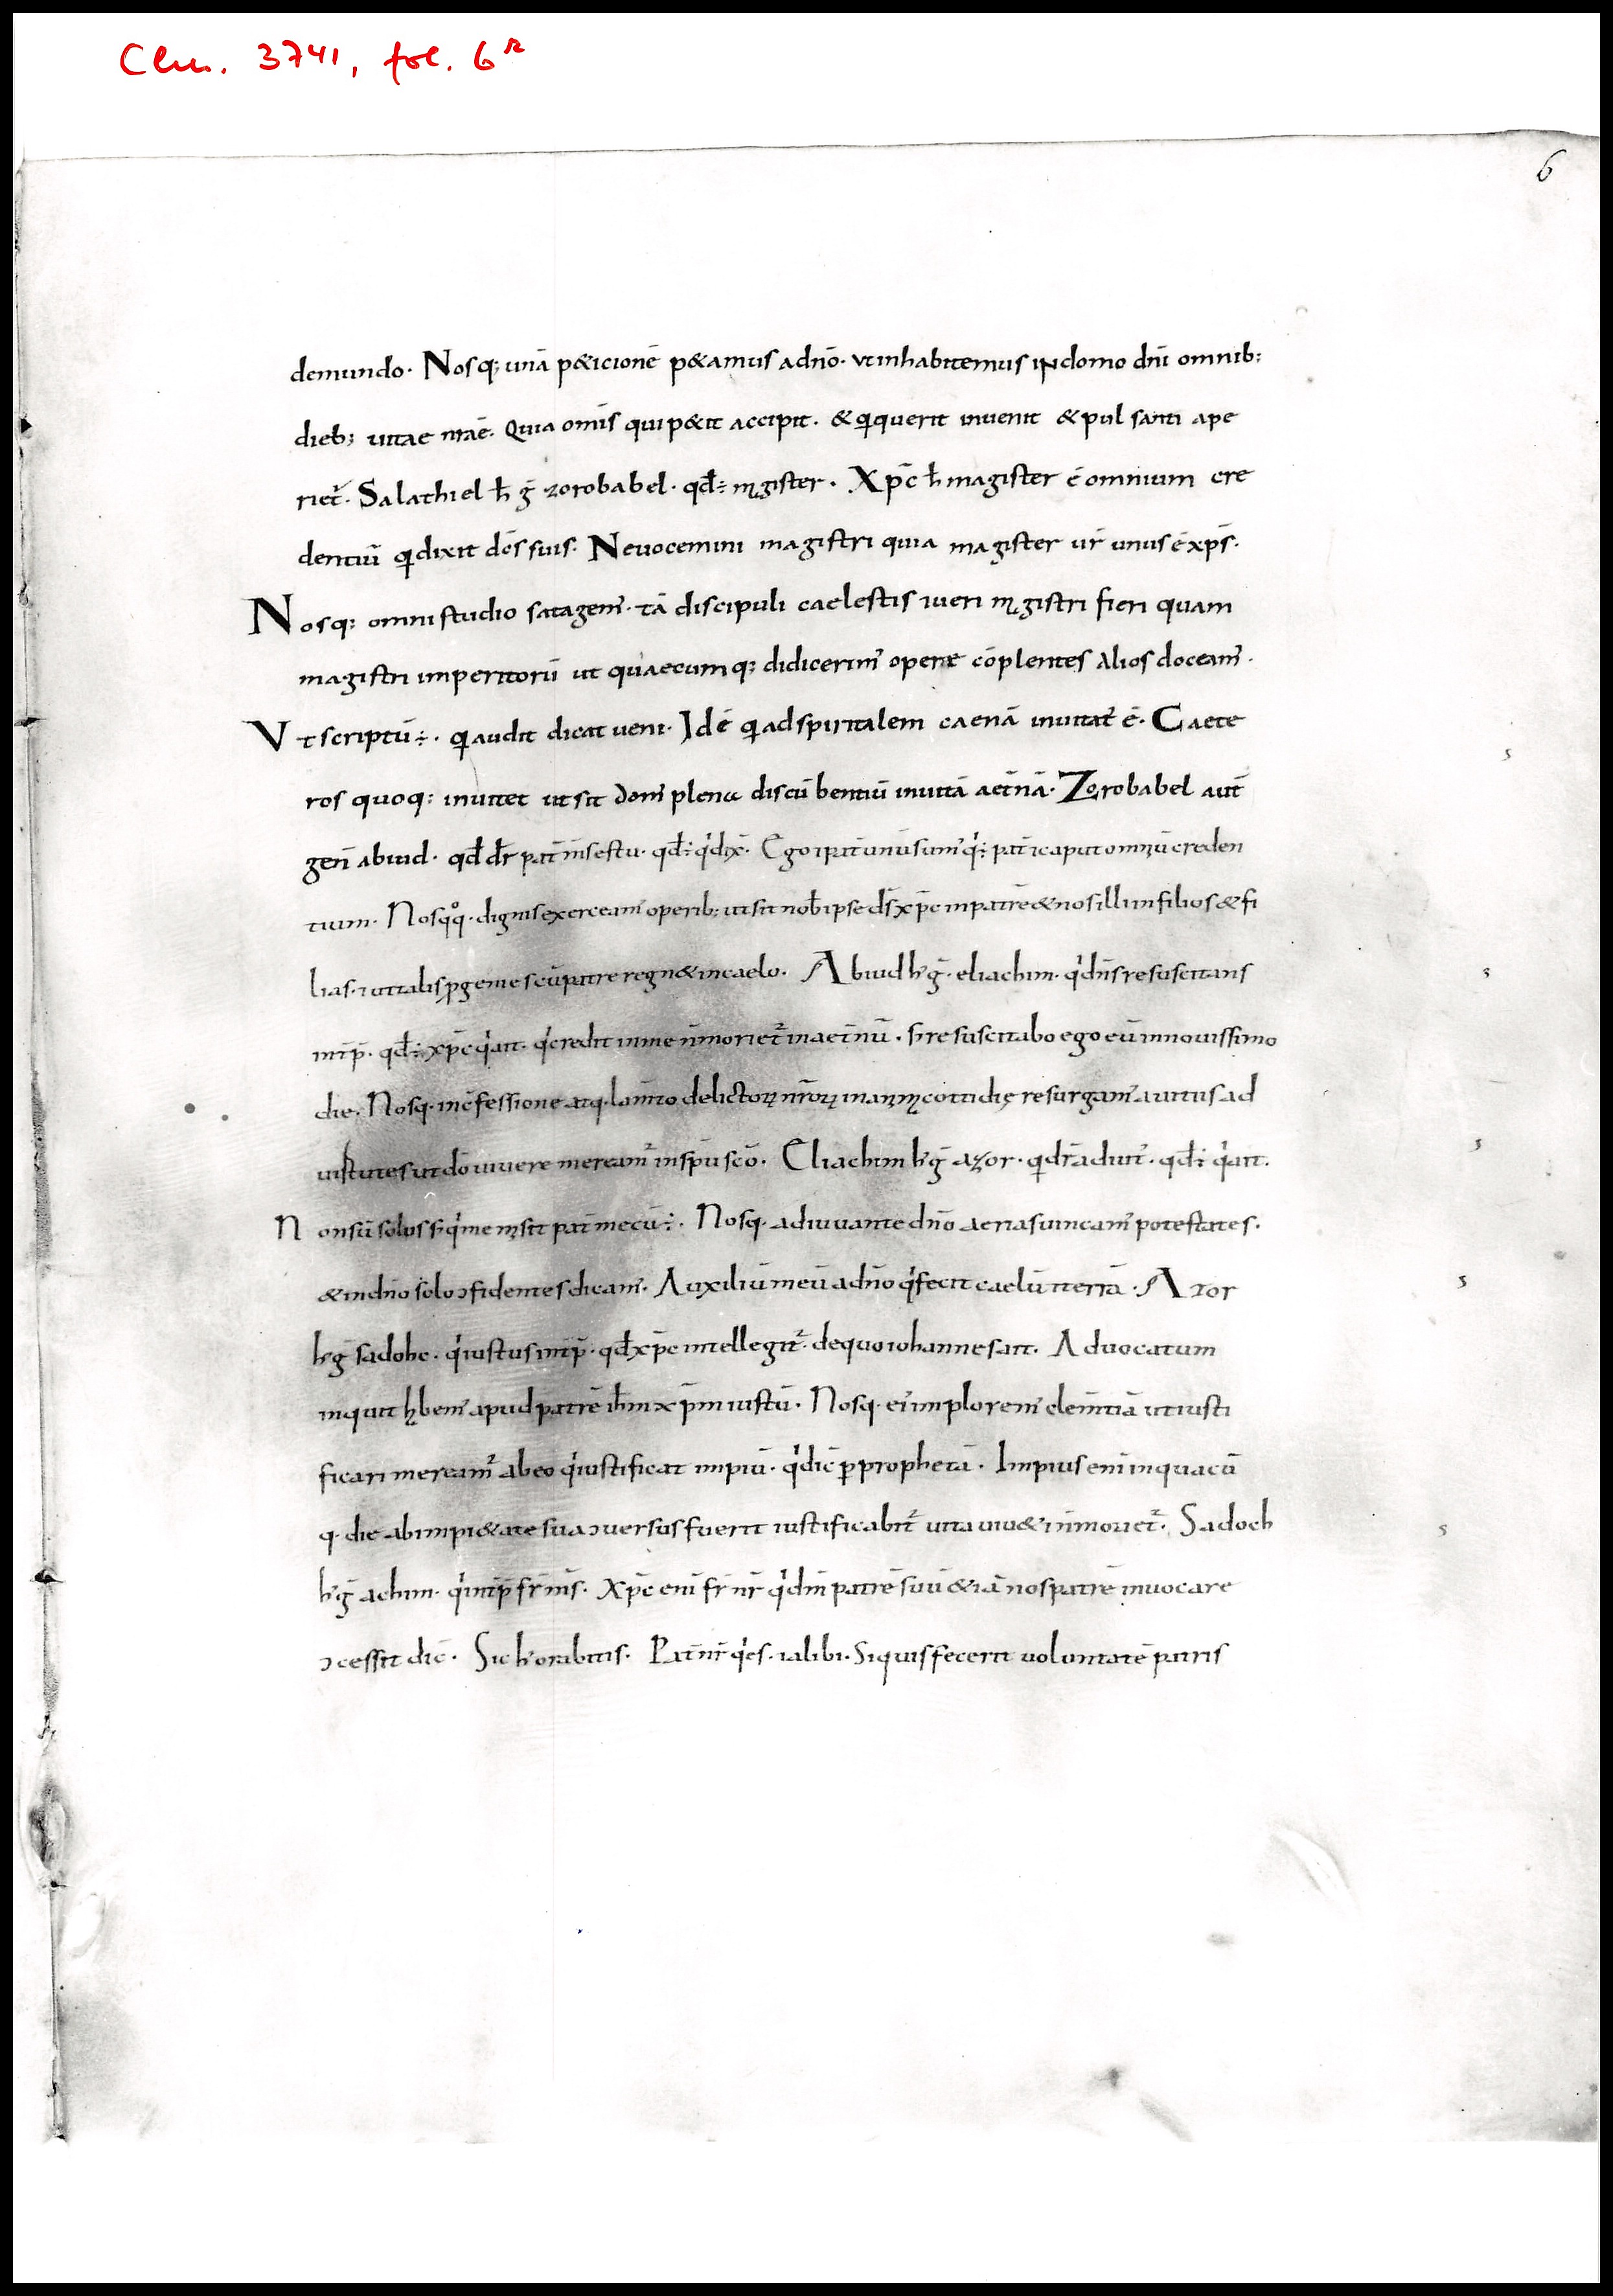 Clm. 3741, fol. 6ʳ
6
demundo. Nosq; unā p&icionē p&amus adnō. ut inhabitemus in domo dnī omnib:
dieb; uitae nrāe. Quia omīs qui p&it accipit. & qui querit inuenit & pulsanti ape
riet̄. Salathiel h̄ ḡ zorobabel. qd̄ ÷ mgister. Xp̄c h̄ magister ē omnium cre
dentiū qui dixit dōs suis. Neuocemini magistri quia magister ur̄ unus ē xp̄s.
Nosq: omni studio satagem̄. tā discipuli caelestis i ueri mgistri fieri quam
magistri imperitorū ut quaecumq: didicerim̄ opere cōplentes Alios doceam̄.
Vt scriptū ÷. qui audit dicat ueni. Idē qui ad spiritalem caenā inuitat̄ ē. Caete
ros quoq: inuitet ut sit dom̄ plena discū bentiū inuitā aet̄nā. Zorobabel aut̄
gen̄ abiud. qd̄ dr̄ pat̄ m̄s estu. qd̄ ÷ q'dix̄. Ego i pat̄ unū sum̄ q' ÷ pat̄ i caput omniū creden
tium. Nosqq̊. dignis exerceam̄ operib; ut sit nob̄ ipse ds̄ xp̄c in patrē & nos illi in filios & fi
lias. i uitalis pgenie s cū patre regn& incaelo. Abiud h' ḡ. eliachim. q'dn̄s resuscitans
int̄p̄. qd̄ ÷ xp̄c q'ait. q'credit inme n̄moriet̄ inaet̄nū. s; resuscitabo ego eū innouissimo
die. Nosq. incfessione atq. lam̄to delictoꝝ nr̄oꝝ cottidię resurgam̄ auitiis ad
uirtutes ut dō uiuere meream̄ inspū scō. Eliachim h' ḡ azor. qui dr̄ adiut̄. qd̄ ÷ q'ait.
Nonsū solus s; q'me misit pat̄ mecū ÷. Nosq. adiuuante dnō aerias uincam̄ potestates.
& indnō solo ɔfidentes dicam̄. Auxiliū meū adnō q'fecit caelū i terrā. Azor
h' ḡ sadohc. q'iustus int̄p̄. qd̄ xp̄c intellegit̄. dequo iohannes ait. Aduocatum
inquit hbem̄ apud patrē ih̄m xp̄m iustū. Nosq. ei implorem̄ clem̄tiā ut iusti
ficari meream̄ abeo q'iustificat impiū. q'dic̄ p prophetā. Impius enī inquacū
q. die abimpi&ate sua ɔuersus fuerit iustificabit̄ uita uiu& i n̄moriet̄. Sadoch
h' ḡ achim. q'int̄p̄ fr̄ m̄s. Xp̄c enī fr̄ nr̄ q'dm̄ patrē suū & iā nos patrē inuocare
ɔcessit dic̄. Sic h' orabitis. Pat̄ nr̄ q'es. i alibi. Siquis fecerit uoluntatē patris